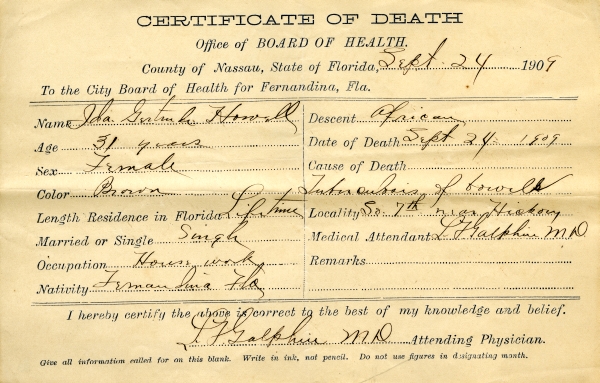 CERTIFICATE OF DEATH
Office of BOARD OF HEALTH.
County of Nassau, State of Florida, Sept. 24 1909
To the City Board of Health for Fernandina, Fla.
Name Ida Gertrude Howell
Age 31 years
Sex Female
Color Brown
Length Residence in Florida Life time
Married or Single Single
Occupation House work
Nativity Fernandina Fla
Descent African
Date of Death Sept 24. 1909
Cause of Death
Tuberculosis of bowells
Locality So. 7th near Hickory
Medical Attendant L F Galphin MD
Remarks
I hereby certify the above is correct to the best of my knowledge and belief.
L F Galphin MD Attending Physician.
Give all information called for on this blank. Write in ink, not pencil. Do not use figures in dsignating month.